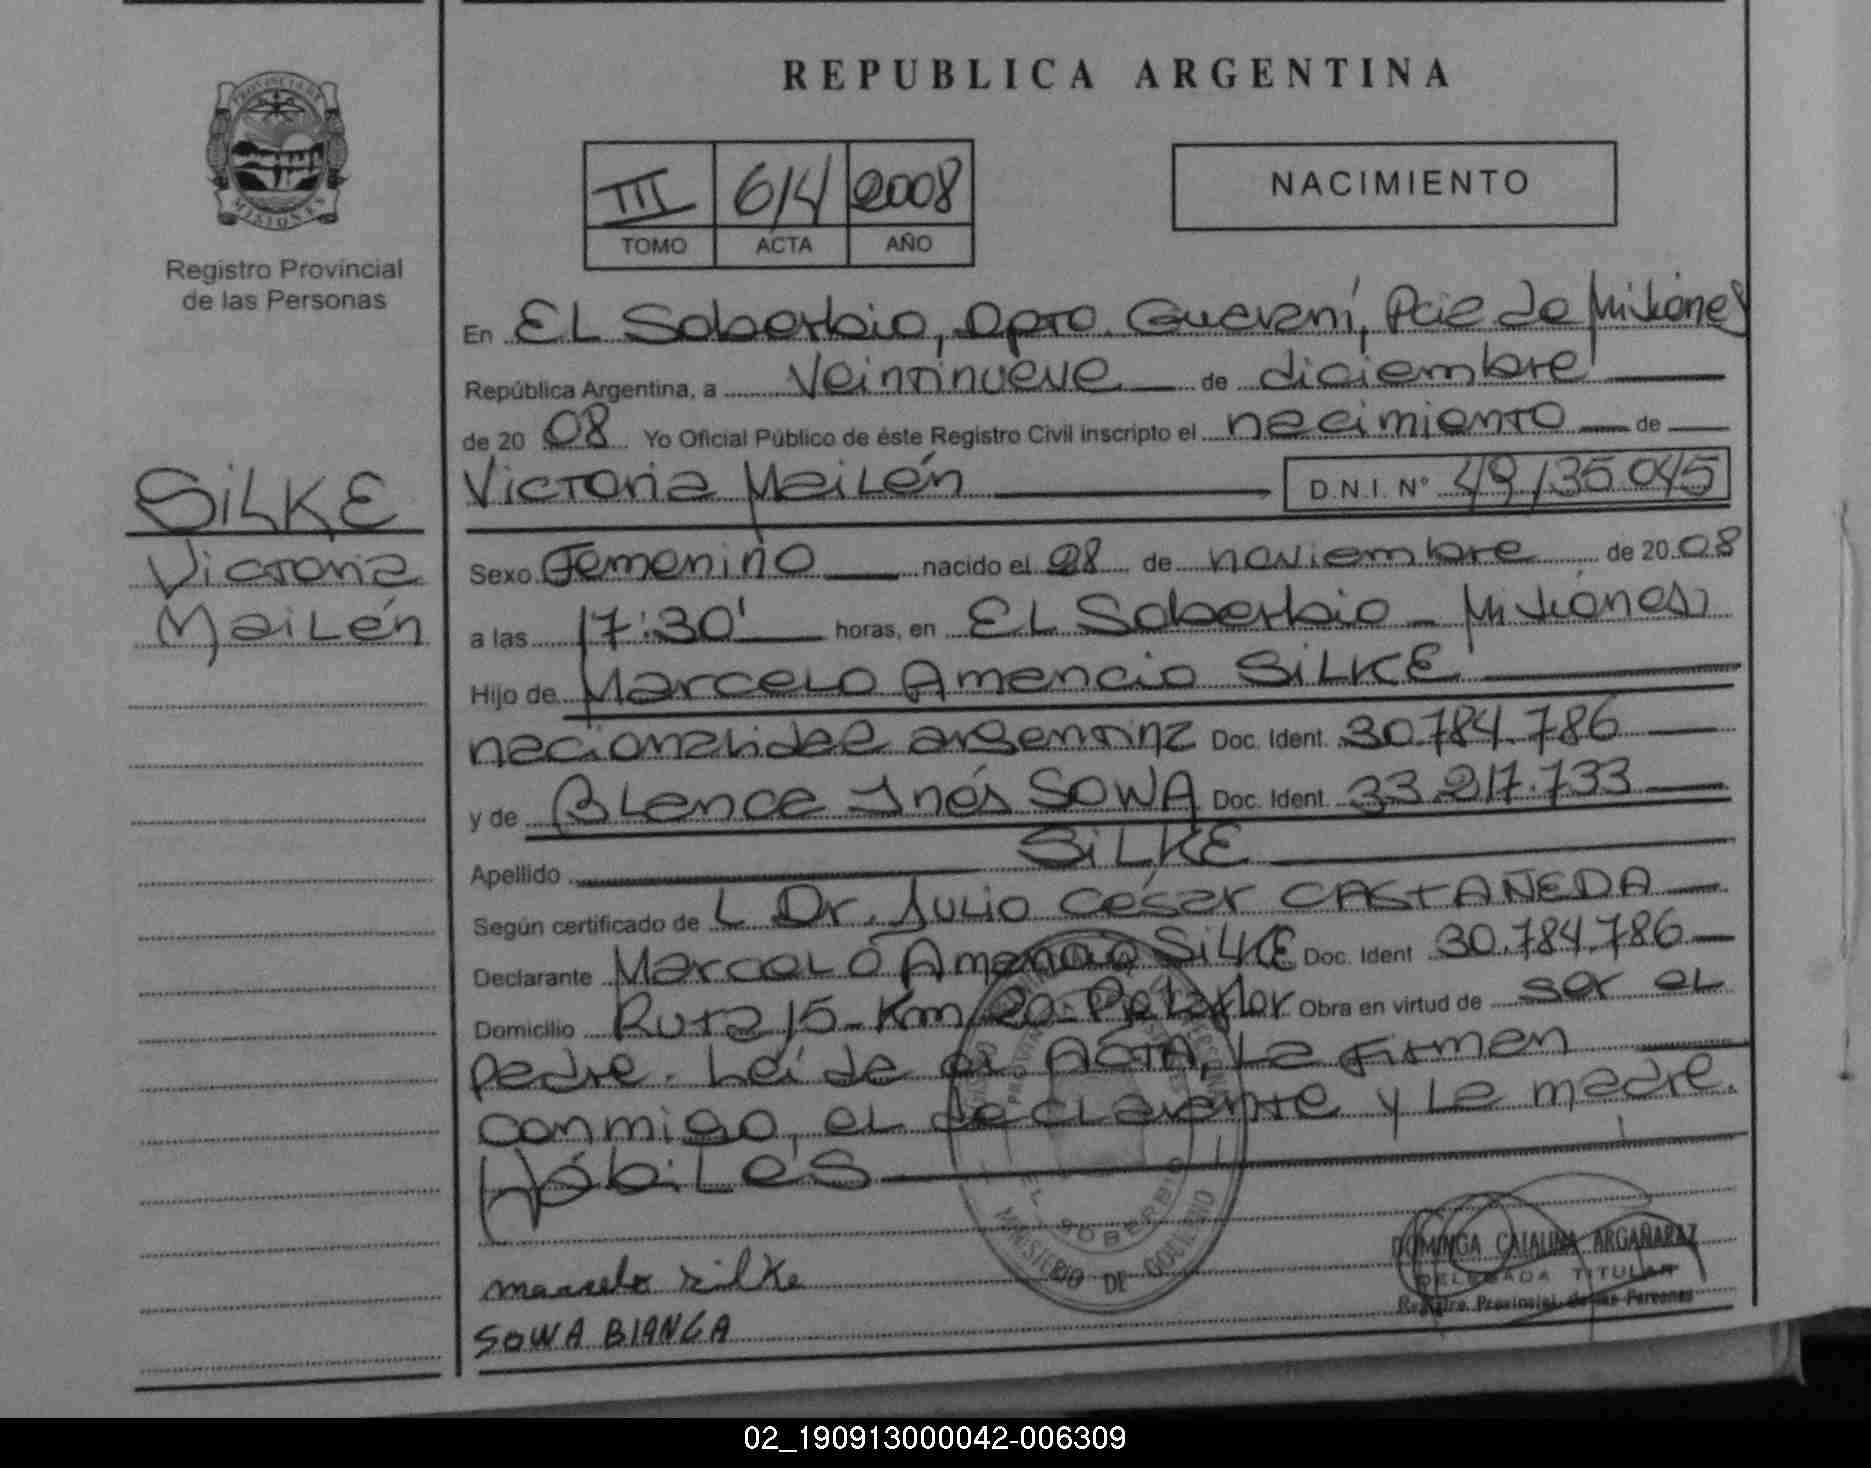 REPUBLICA ARGENTINA
PROVINCIA DE MISIONES
Registro Provincial
de las Personas
III 614 2008
TOMO ACTA AÑO
NACIMIENTO
SILKE
Victoria
Mailén
En EL Soberbio, Dpto. Guaraní, Pcia de Misiones
República Argentina, a Veintinueve de diciembre
de 20 08 Yo Oficial Público de éste Registro Civil inscripto el nacimiento de
Victoria Mailén D.N.I. Nº 49135045
Sexo Femenino nacido el 28 de noviembre de 20 08
a las 17:30' horas, en EL Soberbio - Misiones
Hijo de Marcelo Amancio SILKE
nacionalidad argentina Doc. Ident. 30.784.786
y de Blanca Inés SOWA Doc. Ident. 33.217.733
Apellido SILKE
Según certificado de L Dr. Julio César CASTAÑEDA
Declarante Marcelo Amancio SILKE Doc. Ident 30.784.786
Domicilio Ruta 15 - Km 20 - Obra en virtud de ser el
padre. Leída el ACTA, La Firman
conmigo, el declarante y La madre.
Hábiles
marcelo silke
SOWA BLANCA
EL SOBERBIO
MINISTERIO DE GOBIERNO
DOMINGA CATALINA ARGAÑARAZ
DELEGADA TITULAR
Registro Provincial de las Personas
02_190913000042-006309